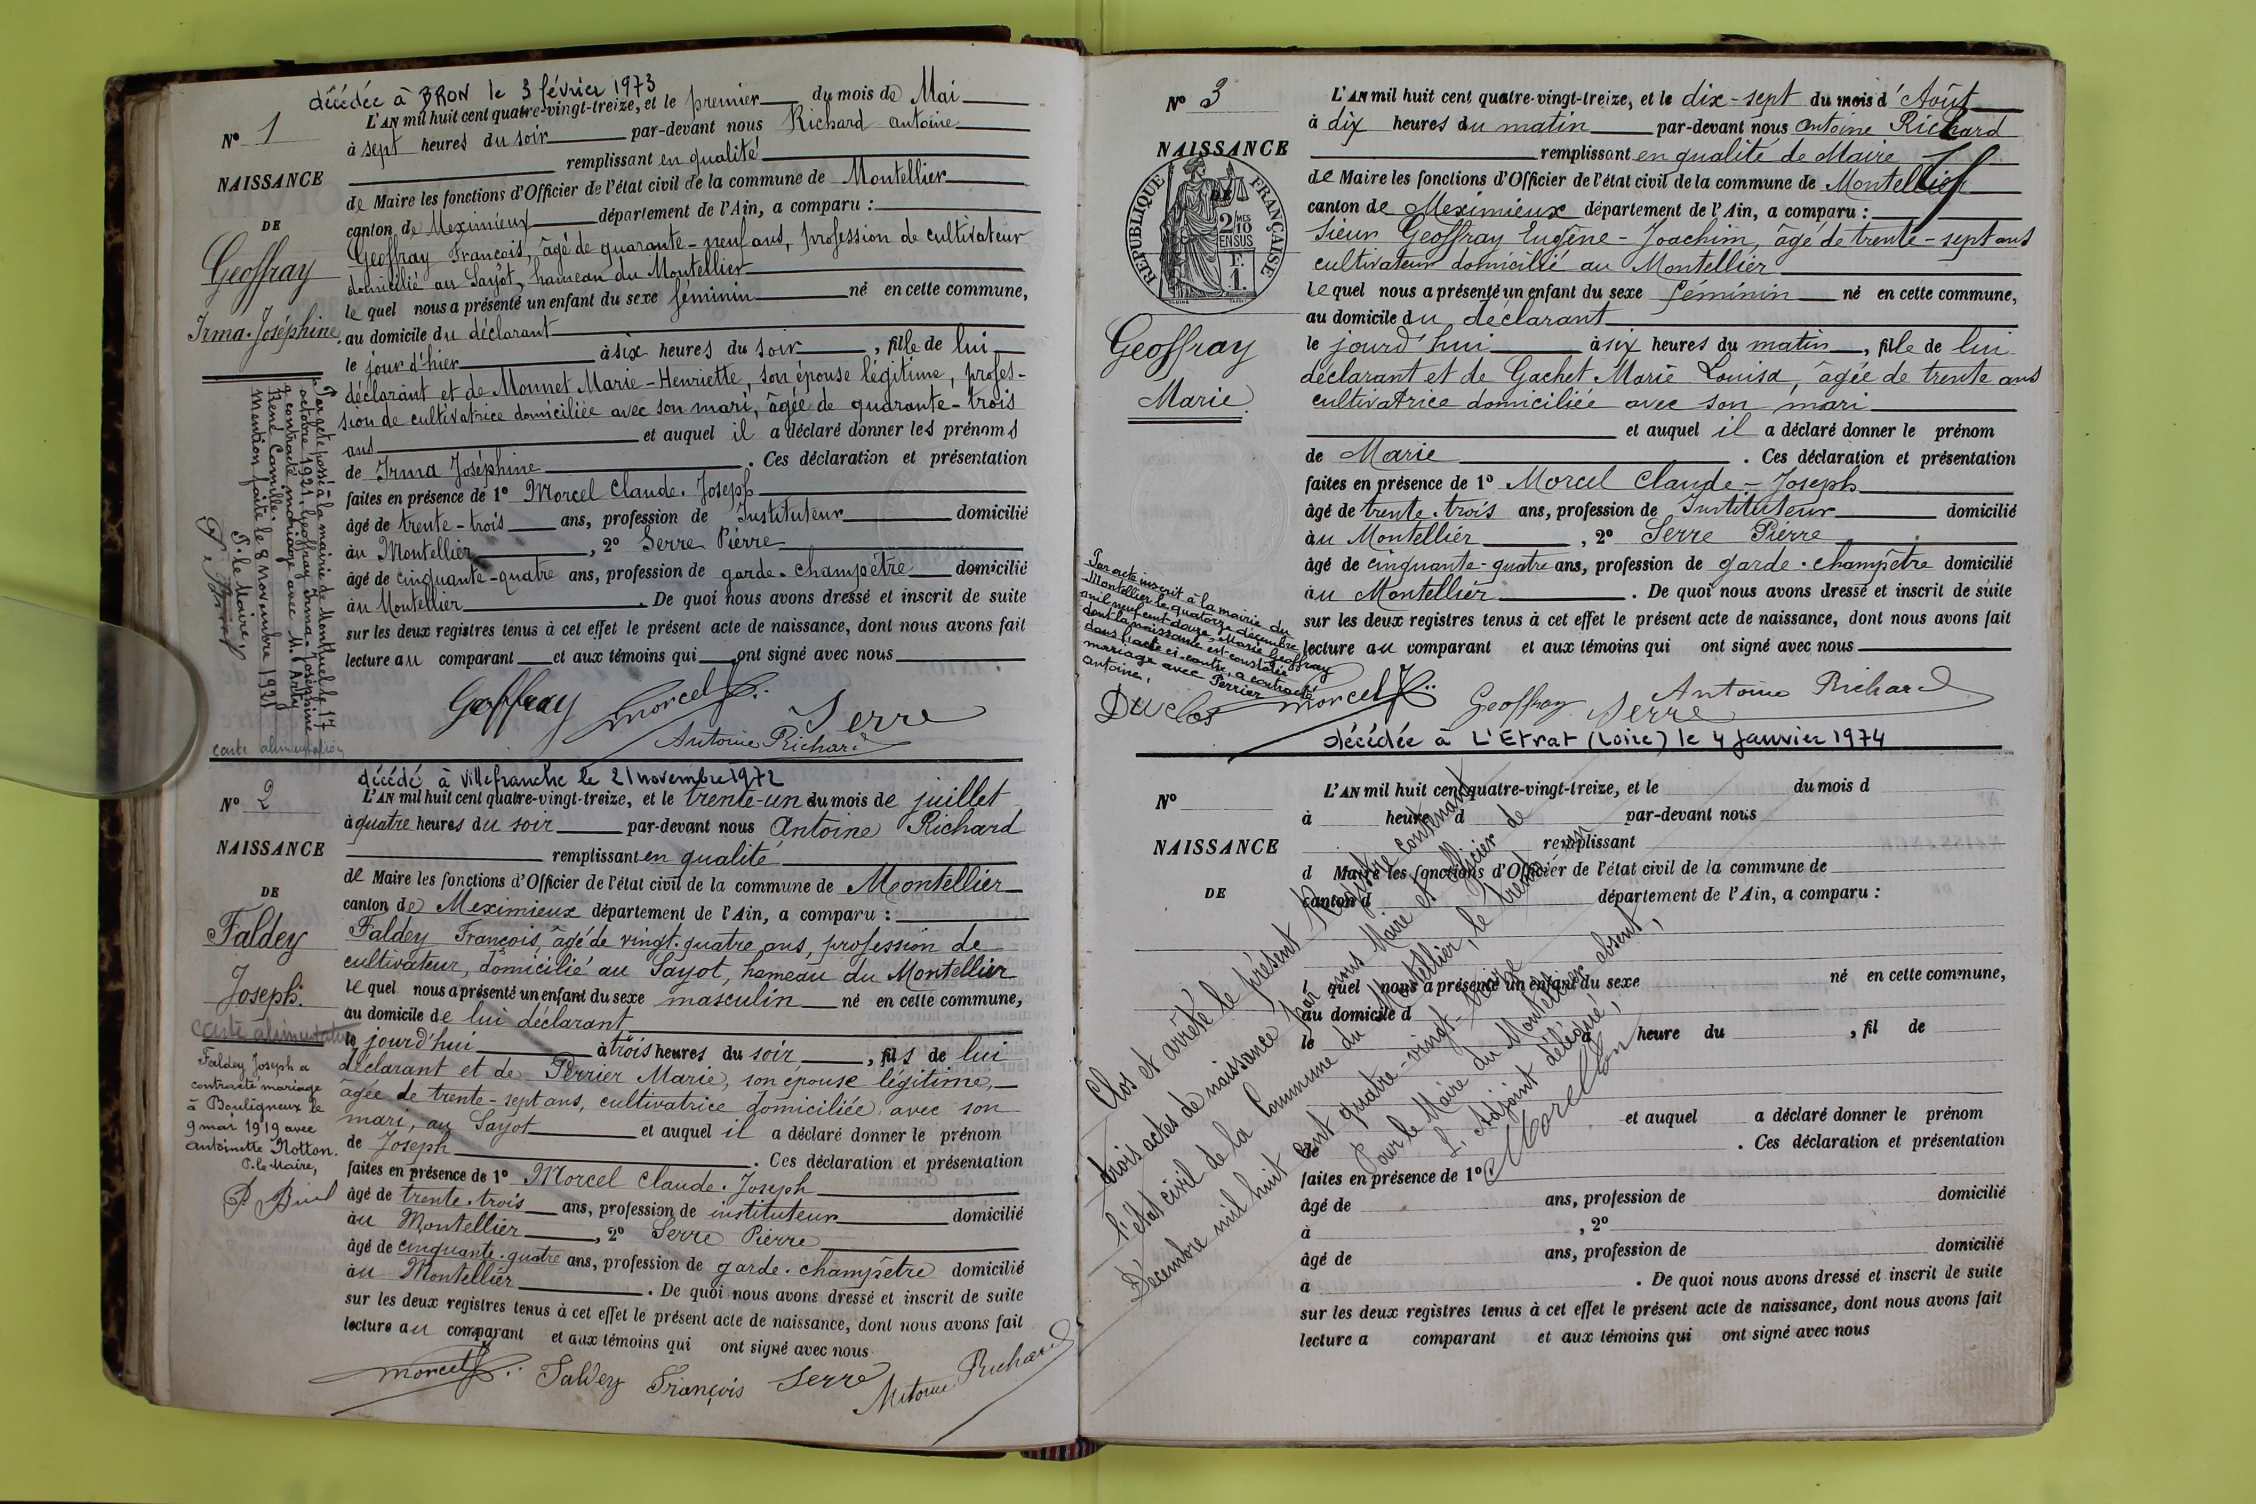 décédée à BRON le 3 février 1973
N° 1
NAISSANCE
DE
Geoffray
Irma-Joséphine.
L'AN mil huit cent quatre-vingt-treize, et le premier du mois de Mai
à sept heures du soir par-devant nous Richard Antoine
remplissant en qualité
de Maire les fonctions d'Officier de l'état civil de la commune de Montellier
canton de Meximieux département de l'Ain, a comparu :
Geoffray François, âgé de quarante-neuf ans, profession de cultivateur
domicilié au Sayot, hameau du Montellier
lequel nous a présenté un enfant du sexe féminin né en cette commune,
au domicile du déclarant
le jour d'hier à six heures du soir, fille de lui
déclarant et de Monnet Marie-Henriette, son épouse légitime, profes-
sion de cultivatrice domiciliée avec son mari, âgée de quarante-trois
ans et auquel il a déclaré donner les prénoms
de Irma Joséphine. Ces déclaration et présentation
faites en présence de 1° Morcel Claude-Joseph
âgé de trente-trois ans, profession de Instituteur domicilié
au Montellier, 2° Serre Pierre
âgé de cinquante-quatre ans, profession de garde-champêtre domicilié
au Montellier. De quoi nous avons dressé et inscrit de suite
sur les deux registres tenus à cet effet le présent acte de naissance, dont nous avons fait
lecture au comparant et aux témoins qui ont signé avec nous
Geoffray Morcel J. Serre
Antoine Richard
Par acte passé à la mairie de Montluel le 17
octobre 1921, Geoffray Irma Joséphine
a contracté mariage avec M. Arley
René Camille.
Mention faite le 8 novembre 1921
P. le Maire,
carte alimentation
décédé à Villefranche le 21 novembre 1972
N° 2
NAISSANCE
DE
Faldey
Joseph.
carte alimentation
Faldey Joseph a
contracté mariage
à Bouligneux le
9 mai 1919 avec
Antoinette Notton.
P. le Maire,
L'AN mil huit cent quatre-vingt-treize, et le trente-un du mois de juillet
à quatre heures du soir par-devant nous Antoine Richard
remplissant en qualité
de Maire les fonctions d'Officier de l'état civil de la commune de Montellier
canton de Meximieux département de l'Ain, a comparu :
Faldey François, âgé de vingt-quatre ans, profession de
cultivateur, domicilié au Sayot, hameau du Montellier
lequel nous a présenté un enfant du sexe masculin né en cette commune,
au domicile de lui déclarant
le jourd'hui à trois heures du soir, fils de lui
déclarant et de Perrier Marie, son épouse légitime,
âgée de trente-sept ans, cultivatrice domiciliée avec son
mari, au Sayot et auquel il a déclaré donner le prénom
de Joseph. Ces déclaration et présentation
faites en présence de 1° Morcel Claude-Joseph
âgé de trente-trois ans, profession de instituteur domicilié
au Montellier, 2° Serre Pierre
âgé de cinquante-quatre ans, profession de garde-champêtre domicilié
au Montellier. De quoi nous avons dressé et inscrit de suite
sur les deux registres tenus à cet effet le présent acte de naissance, dont nous avons fait
lecture au comparant et aux témoins qui ont signé avec nous
Morcel J. Faldey François Serre Antoine Richard
N° 3
NAISSANCE
DE
RÉPUBLIQUE FRANÇAISE
2/10 MES
EN SUS
F.
1.
Geoffray
Marie.
L'AN mil huit cent quatre-vingt-treize, et le dix-sept du mois d'Août
à dix heures du matin par-devant nous Antoine Richard
remplissant en qualité de Maire
de Maire les fonctions d'Officier de l'état civil de la commune de Montellier
canton de Meximieux département de l'Ain, a comparu :
sieur Geoffray Eugène-Joachim, âgé de trente-sept ans
cultivateur domicilié au Montellier
lequel nous a présenté un enfant du sexe féminin né en cette commune,
au domicile du déclarant
le jourd'hui à six heures du matin, fille de lui
déclarant et de Gachet Marie Louisa, âgée de trente ans
cultivatrice domiciliée avec son mari
et auquel il a déclaré donner le prénom
de Marie. Ces déclaration et présentation
faites en présence de 1° Morcel Claude-Joseph
âgé de trente-trois ans, profession de Instituteur domicilié
au Montellier, 2° Serre Pierre
âgé de cinquante-quatre ans, profession de garde-champêtre domicilié
au Montellier. De quoi nous avons dressé et inscrit de suite
sur les deux registres tenus à cet effet le présent acte de naissance, dont nous avons fait
lecture au comparant et aux témoins qui ont signé avec nous
Par acte inscrit à la mairie du
Montellier le quatorze décembre
mil neuf cent douze, Marie Geoffray
dont la naissance est constatée
dans l'acte ci-contre, a contracté
mariage avec Perrier
Antoine.
Duclos Morcel J. Geoffray Serre Antoine Richard
décédée à L'Etrat (Loire) le 4 janvier 1974
N°
NAISSANCE
DE
L'AN mil huit cent quatre-vingt-treize, et le du mois d
à heure d par-devant nous
remplissant
d Maire les fonctions d'Officier de l'état civil de la commune de
canton d département de l'Ain, a comparu :
l quel nous a présenté un enfant du sexe né en cette commune,
au domicile d
le à heure du , fil de
et auquel a déclaré donner le prénom
de . Ces déclaration et présentation
faites en présence de 1°
âgé de ans, profession de domicilié
à , 2°
âgé de ans, profession de domicilié
à . De quoi nous avons dressé et inscrit de suite
sur les deux registres tenus à cet effet le présent acte de naissance, dont nous avons fait
lecture a comparant et aux témoins qui ont signé avec nous
Clos et arrêté le présent Registre contenant
trois actes de naissance par nous Maire et Officier de
l'état civil de la Commune du Montellier, le trente un
Décembre mil huit cent quatre-vingt-treize
Pour le Maire du Montellier absent,
L'Adjoint délégué,
Morellon